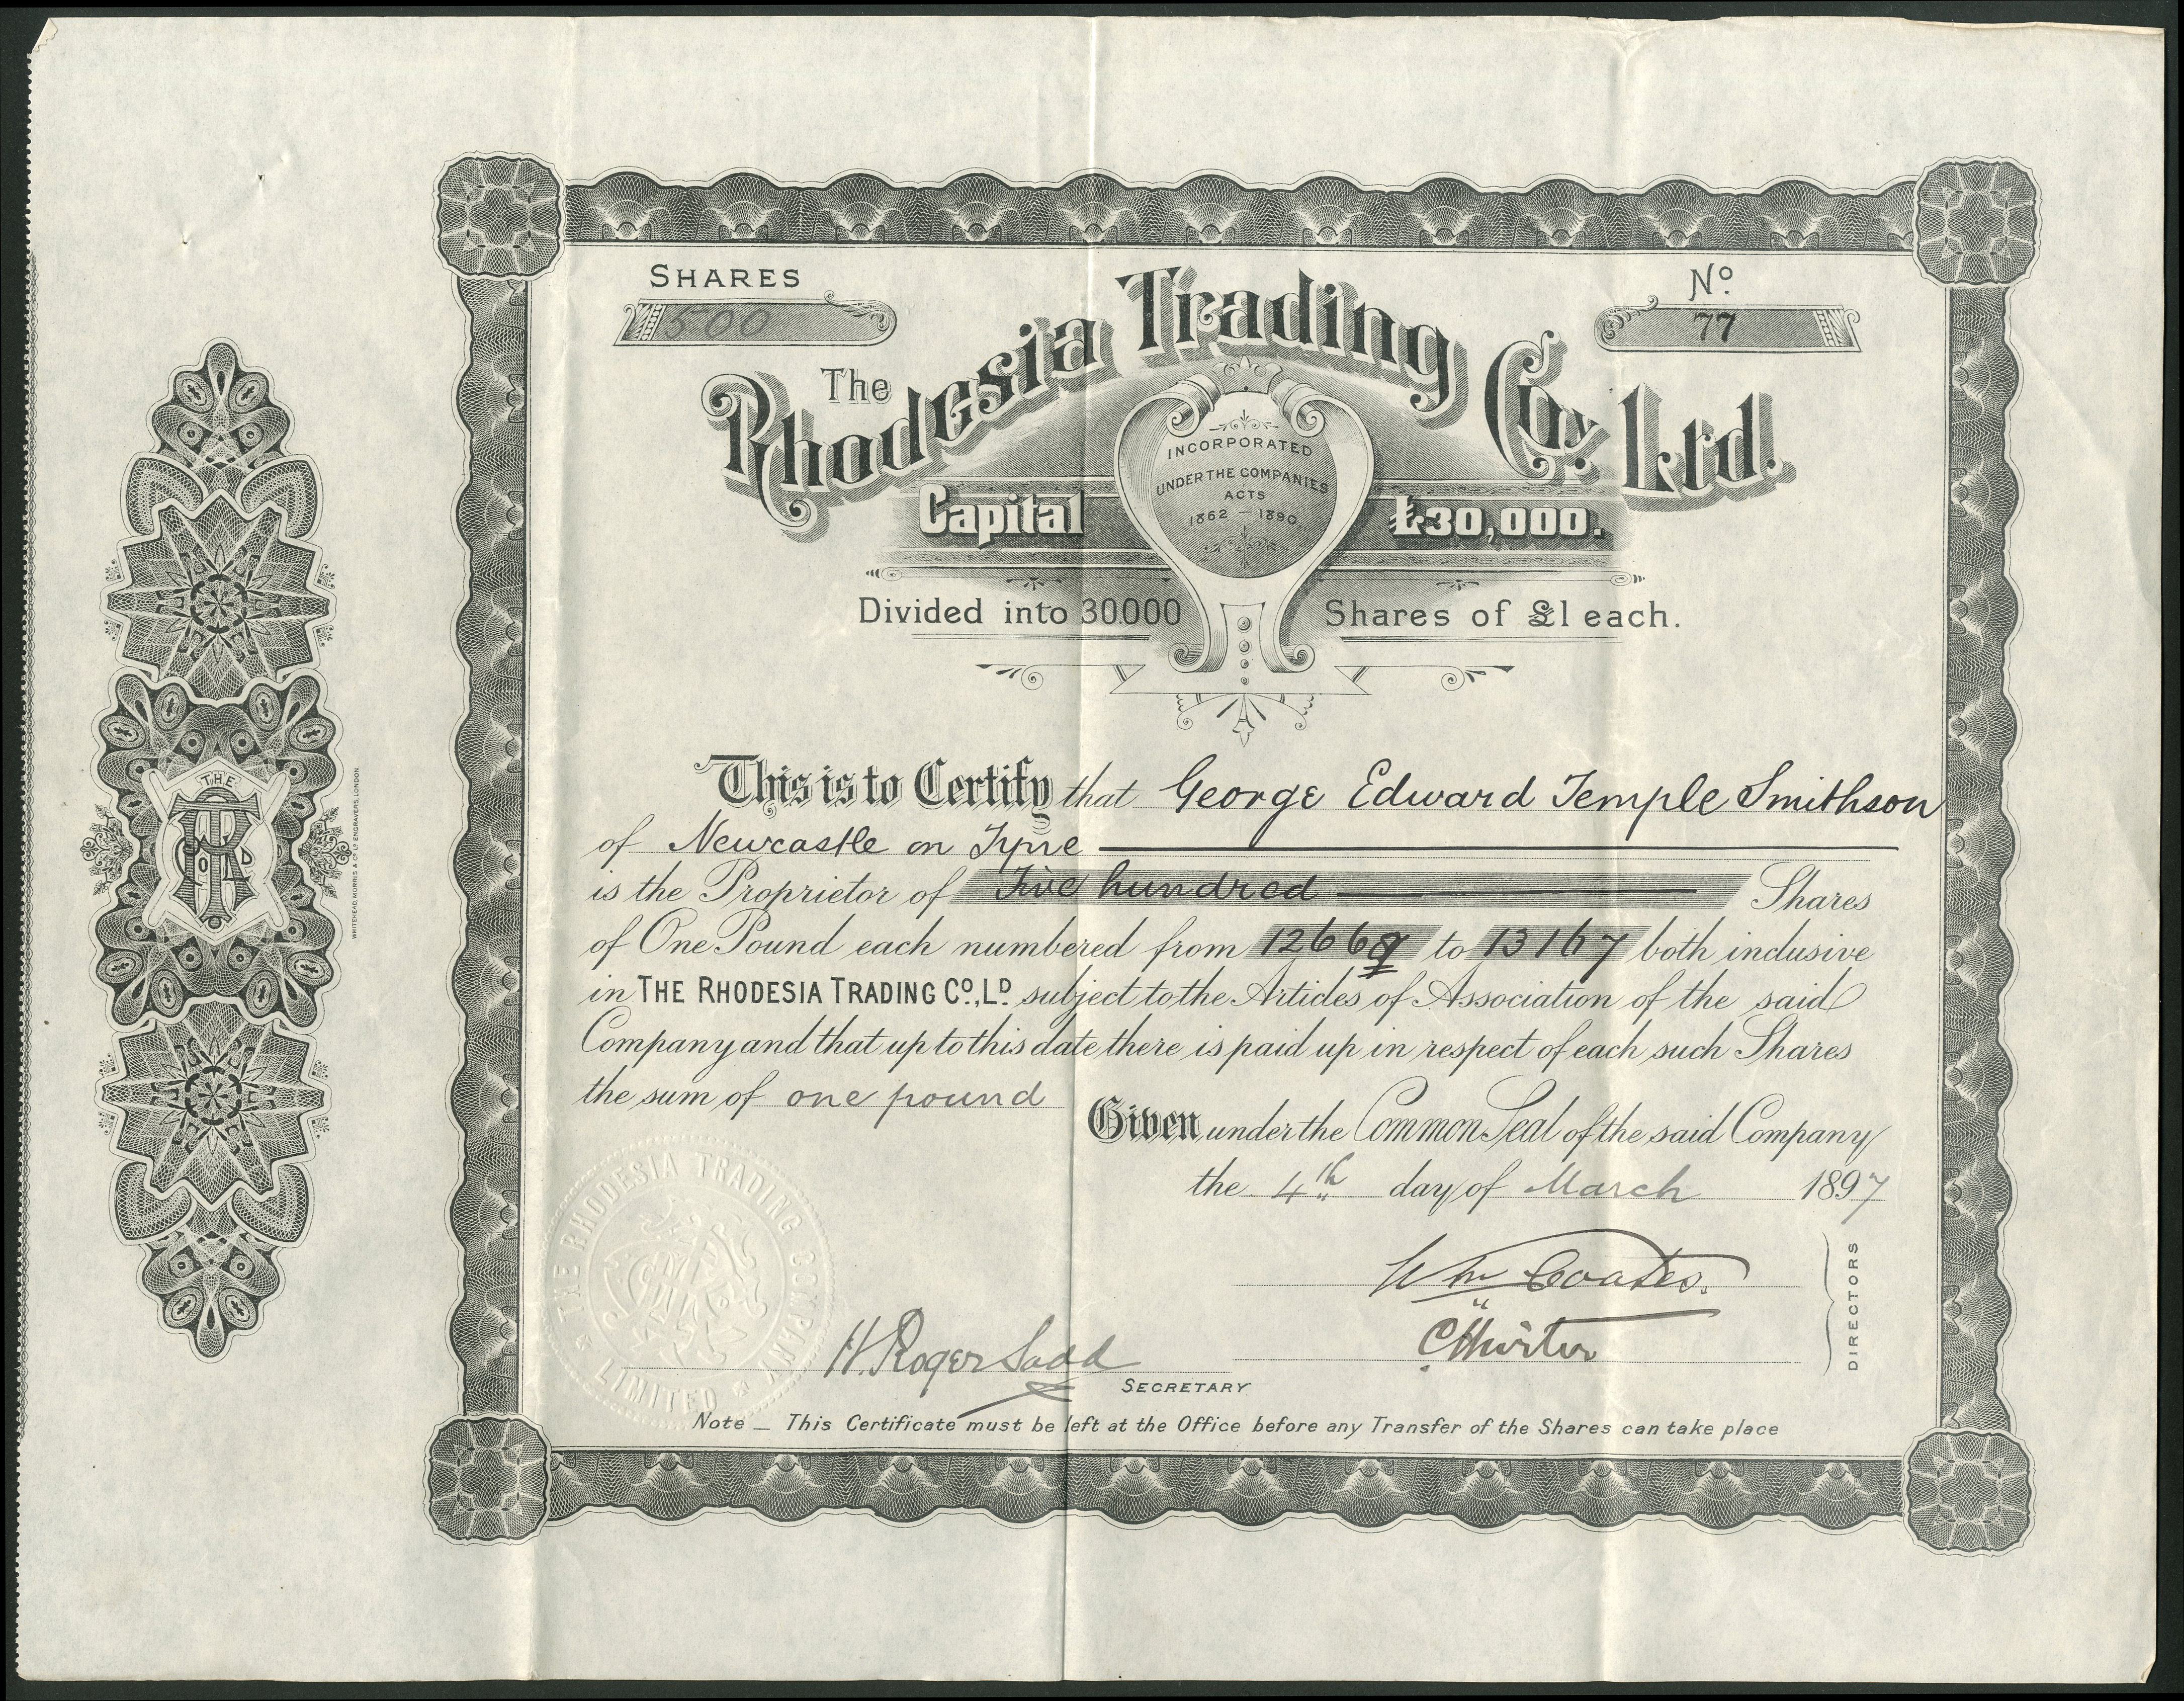 SHARES
500
No
77
The
Rhodesia Trading Coy. Ltd.
INCORPORATED
UNDER THE COMPANIES
ACTS
1862 — 1890
Capital £30,000.
Divided into 30.000 Shares of £1 each.
This is to Certify that George Edward Temple Smithson
of Newcastle on Tyne
is the Proprietor of Five hundred Shares
of One Pound each numbered from 12668 to 13167 both inclusive
in THE RHODESIA TRADING Co., LD. subject to the Articles of Association of the said
Company and that up to this date there is paid up in respect of each such Shares
the sum of one pound
Given under the Common Seal of the said Company
the 4th day of March 1897
Wm Coates.
DIRECTORS
H. Roger Sadd
SECRETARY
Note — This Certificate must be left at the Office before any Transfer of the Shares can take place
THE RHODESIA TRADING COMPANY LIMITED
THE
WHITEHEAD, MORRIS & Co Ld ENGRAVERS, LONDON